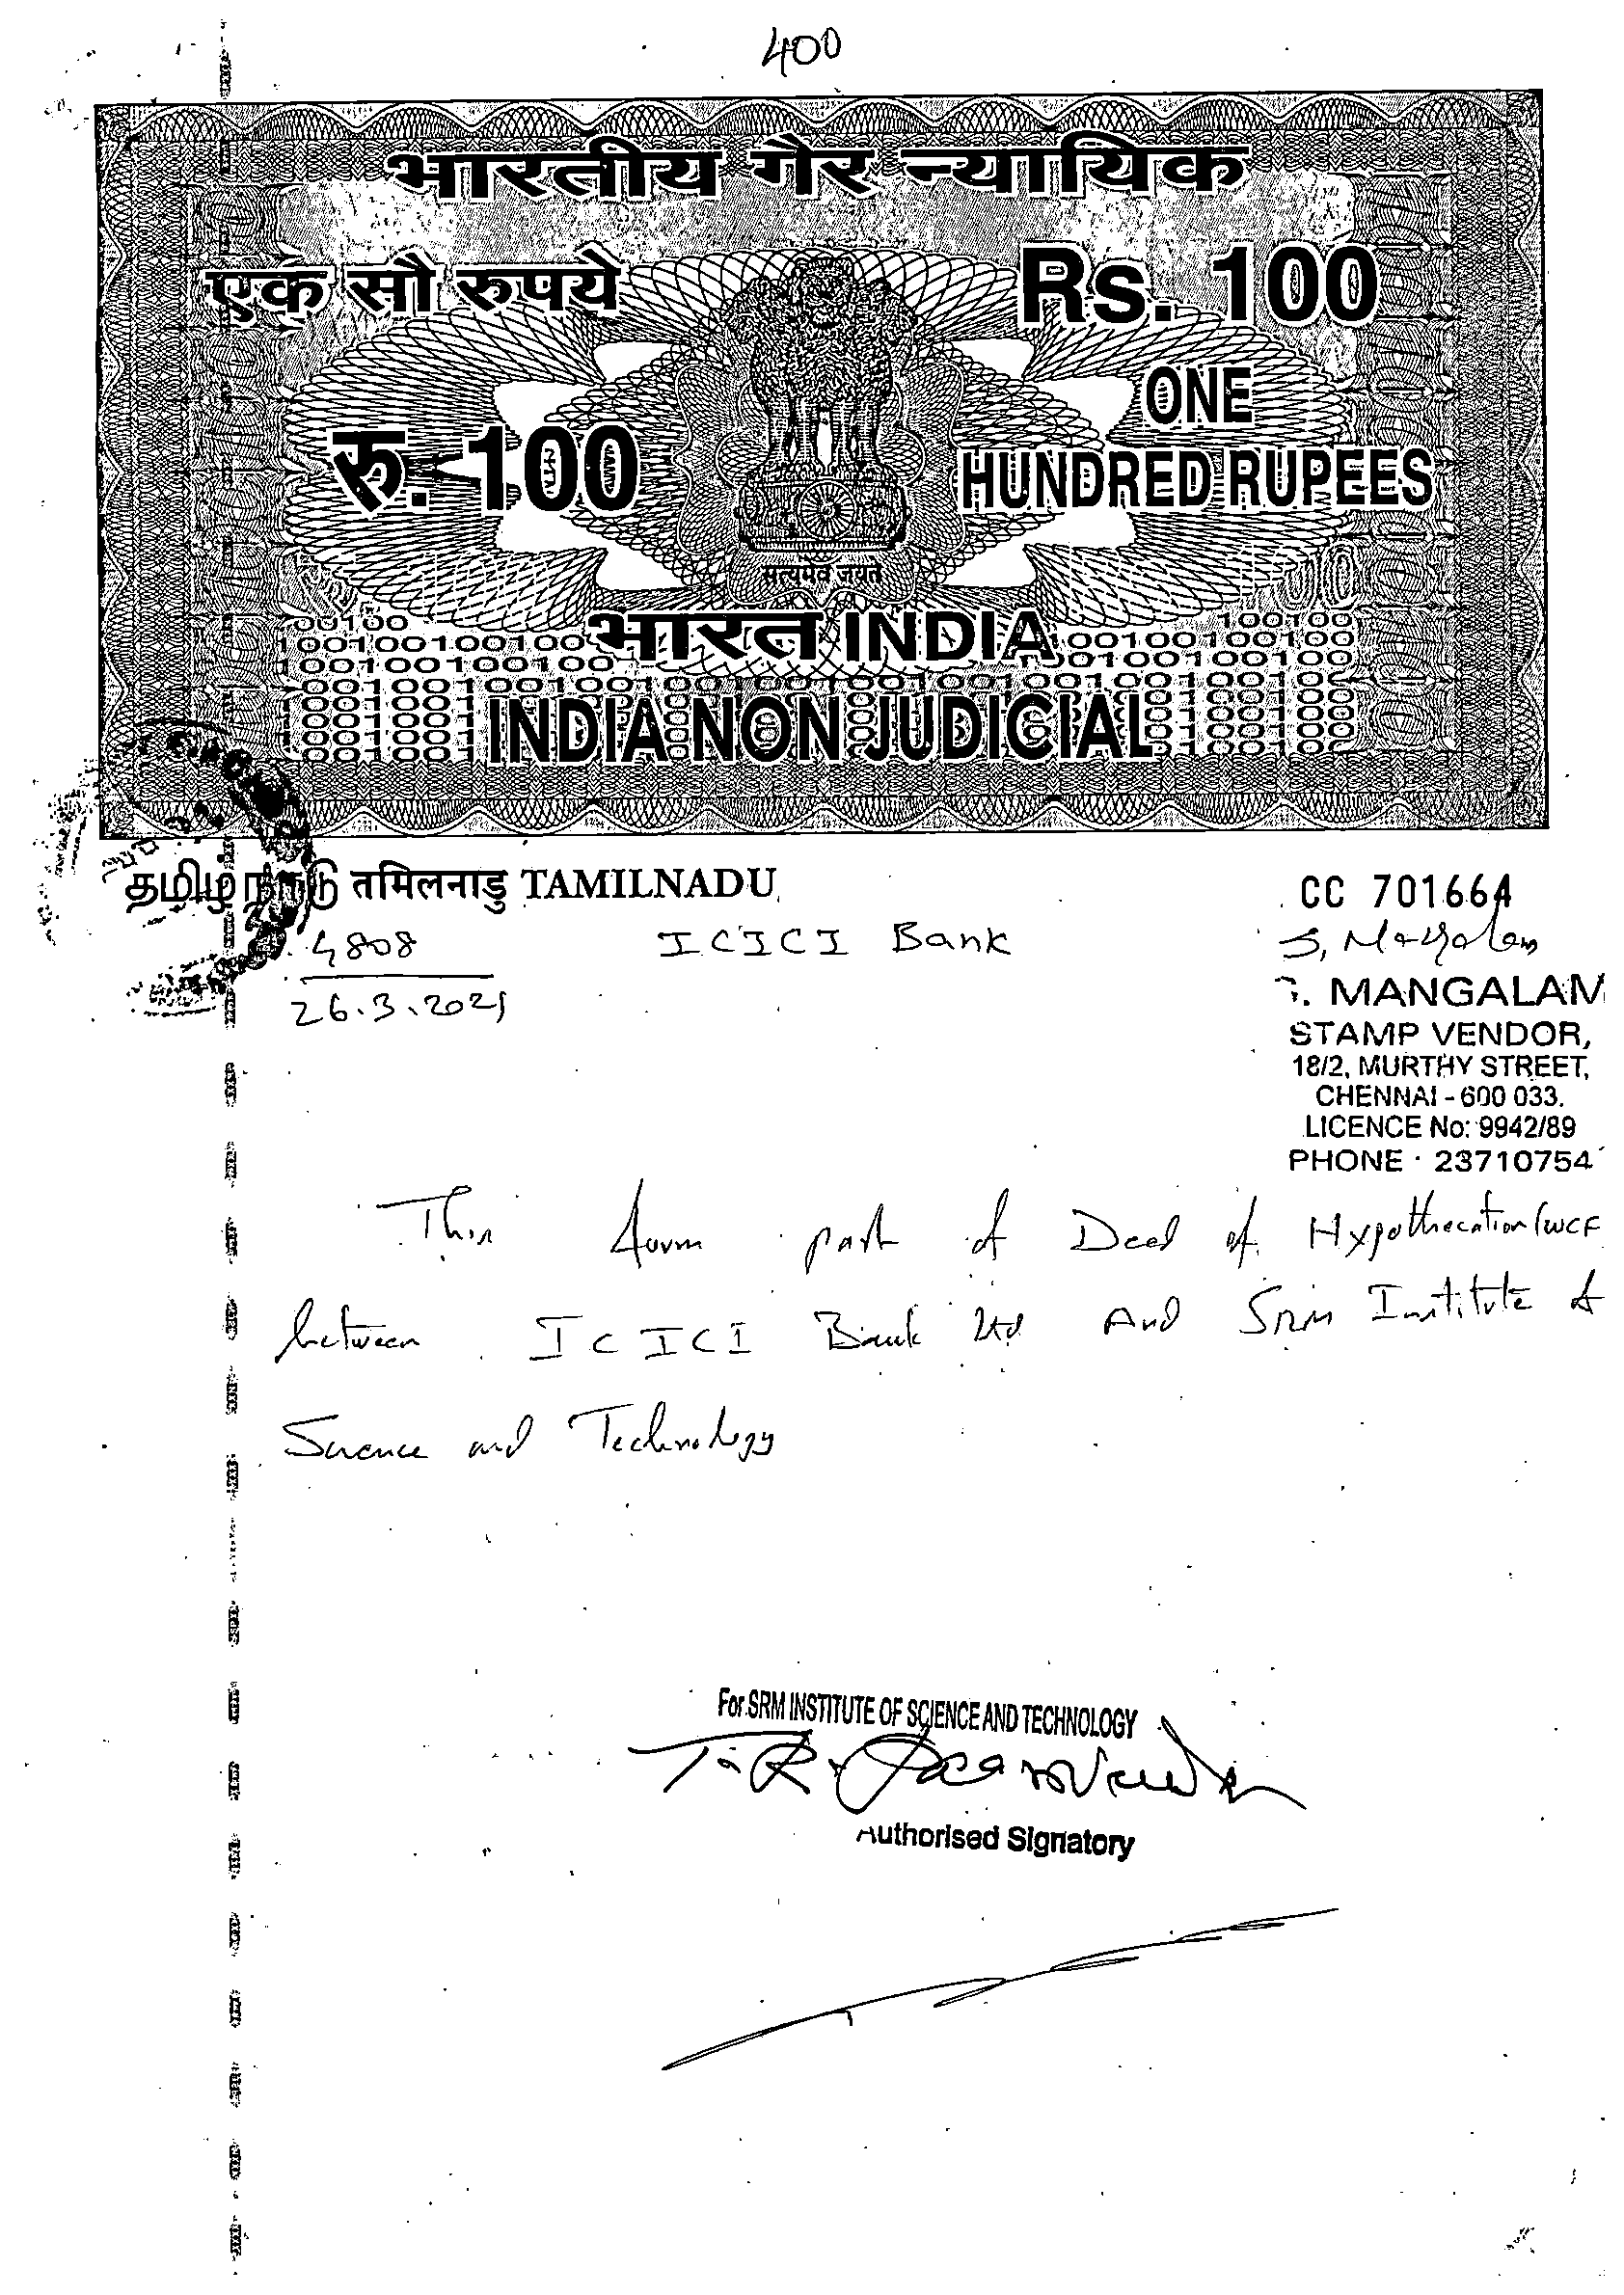 400
भारतीय गैर न्यायिक
एक सौ रुपये
Rs. 100
रु. 100
ONE
HUNDRED RUPEES
सत्यमेव जयते
भारत INDIA
INDIA NON JUDICIAL
தமிழ்நாடு तमिलनाडु TAMILNADU
CC 701664
4808
ICICI Bank
S. Mangalam
26.3.2021
. MANGALAM
STAMP VENDOR,
18/2, MURTHY STREET,
CHENNAI - 600 033.
LICENCE No: 9942/89
PHONE : 23710754
This form part of Deed of Hypothecation (WCF
between ICICI Bank Ltd And SRM Institute of
Science and Technology
For SRM INSTITUTE OF SCIENCE AND TECHNOLOGY
Authorised Signatory